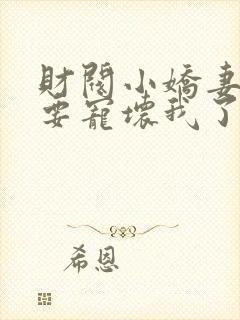 財閥小嬌妻
要寵壞我了
希恩